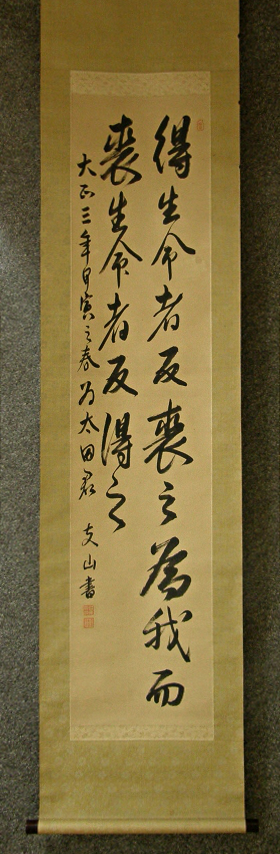 得生命者反喪之為我而
喪生命者反得之
大正三年甲寅之春為太田君
支山書